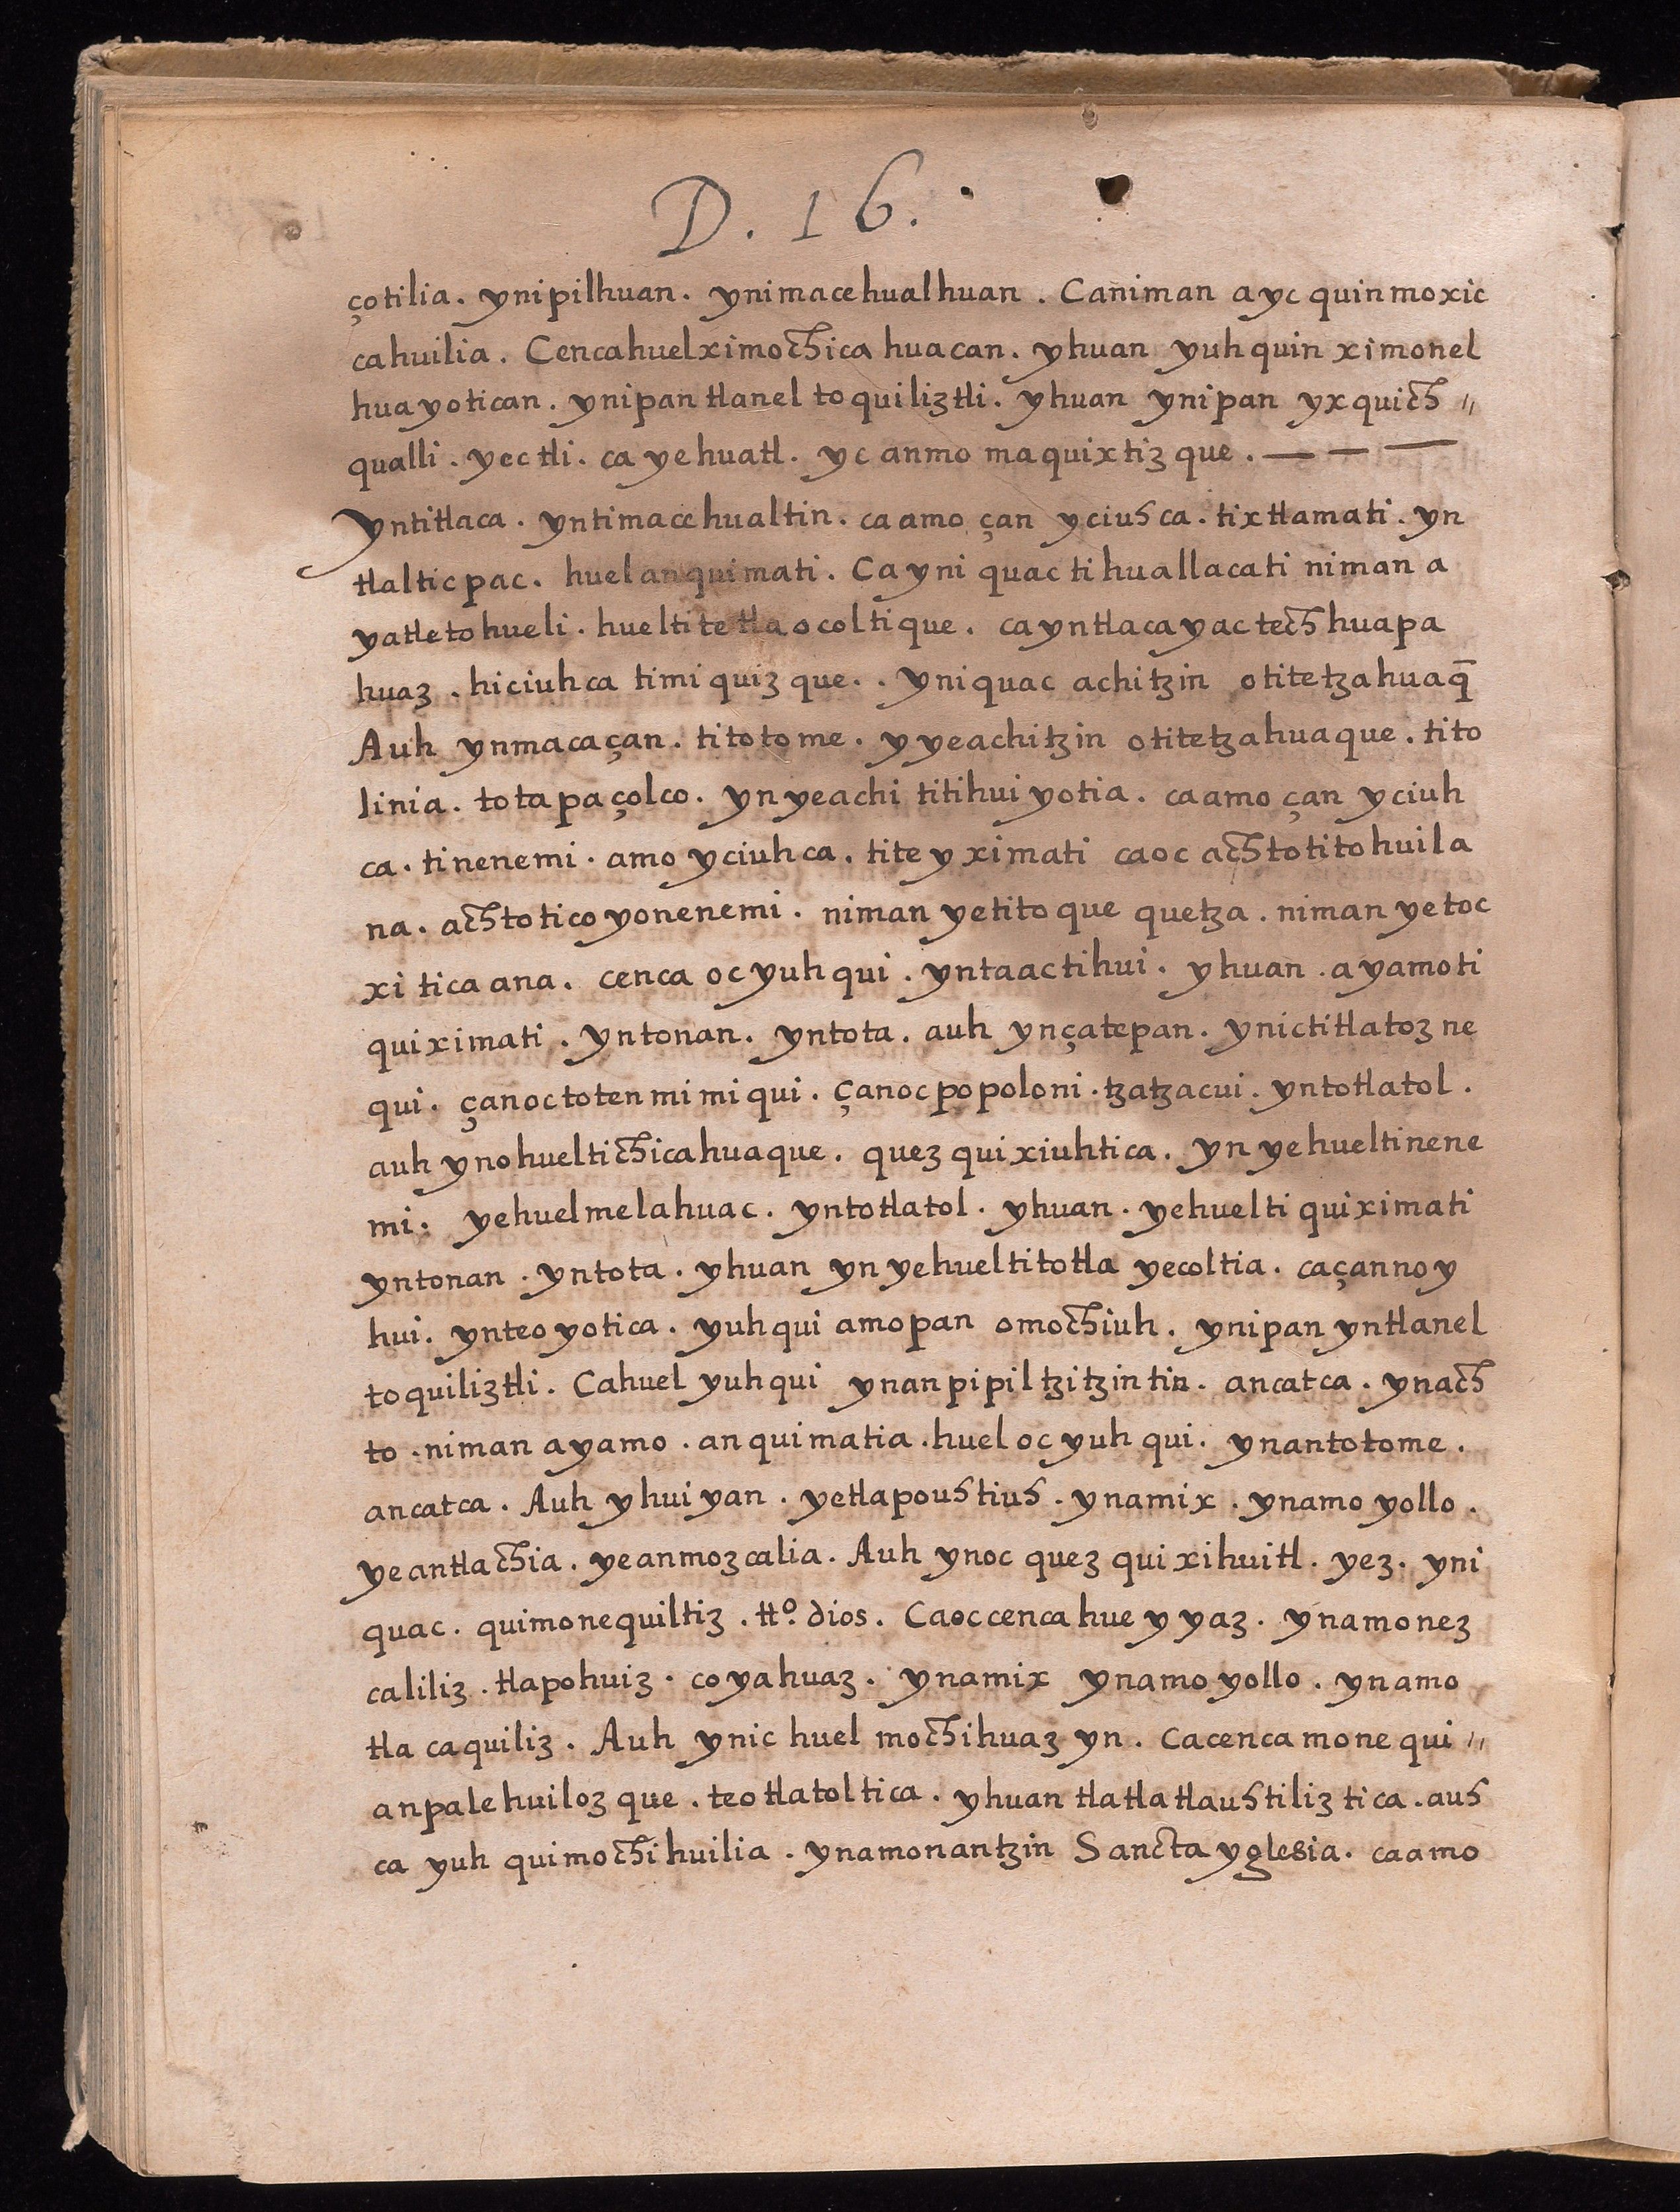 D. 16.
çotilia. ynipilhuan. ynimacehualhuan. Caniman ayc quinmoxic
cahuilia. Cencahuelximochicahuacan. yhuan yuhquin ximonel
huayotican. ynipan tlaneltoquiliztli. yhuan ynipan yxquich //
qualli. yectli. ca yehuatl. yc anmomaquixtizque. — — —
yntitlaca. yntimacehualtin. caamo çan yciusca. tixtlamati. yn
tlalticpac. huelanquimati. Cayniquac tihuallacati niman a
yatletohueli. hueltitetlaocoltique. cayntlacayac techhuapa
huaz. hiciuhca timiquizque.. yniquac achitzin otitetzahuaq̄
Auh ynmacaçan. titotome. yyeachitzin otitetzahuaque. tito
linia. totapaçolco. ynyeachi titihuiyotia. caamo çan yciuh
ca. tinenemi. amo yciuhca. titeyximati caoc achtotitohuila
na. achtoticoyonenemi. niman yetitoquequetza. niman yetoc
xiticaana. cenca oc yuhqui. yntaactihui. yhuan. ayamoti
quiximati. yntonan. yntota. auh ynçatepan. ynictitlatozne
qui. çanoctotenmimiqui. çanocpopoloni. tzatzacui. yntotlatol.
auh ynohueltichicahuaque. quezquixiuhtica. yn yehueltinene
mi: yehuelmelahuac. yntotlatol. yhuan. yehueltiquiximati
yntonan. yntota. yhuan yn yehueltitotlayecoltia. caçannoy
hui. ynteoyotica. yuhqui amopan omochiuh. ynipan yntlanel
toquiliztli. Cahuel yuhqui ynanpipiltzitzintin. ancatca. ynach
to. niman ayamo. anquimatia. huel oc yuhqui. ynantotome.
ancatca. Auh yhuiyan. yetlapoustius. ynamix. ynamoyollo.
yeantlachia. yeanmozcalia. Auh ynoc quezquixihuitl. yez. yni
quac. quimonequiltiz. tt.º dios. Caoccencahueyyaz. ynamonez
caliliz. tlapohuiz. coyahuaz. ynamix ynamoyollo. ynamo
tlacaquiliz. Auh ynic huel mochihuaz yn. Cacencamonequi //
anpalehuilozque. teotlatoltica. yhuan tlatlatlaustiliztica. aus
ca yuh quimochihuilia. ynamonantzin Sancta yglesia. caamo